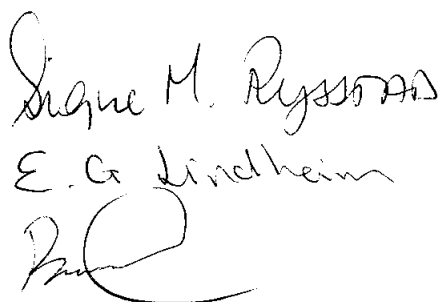 Signe M. Ryssdad
E. G Lindheim